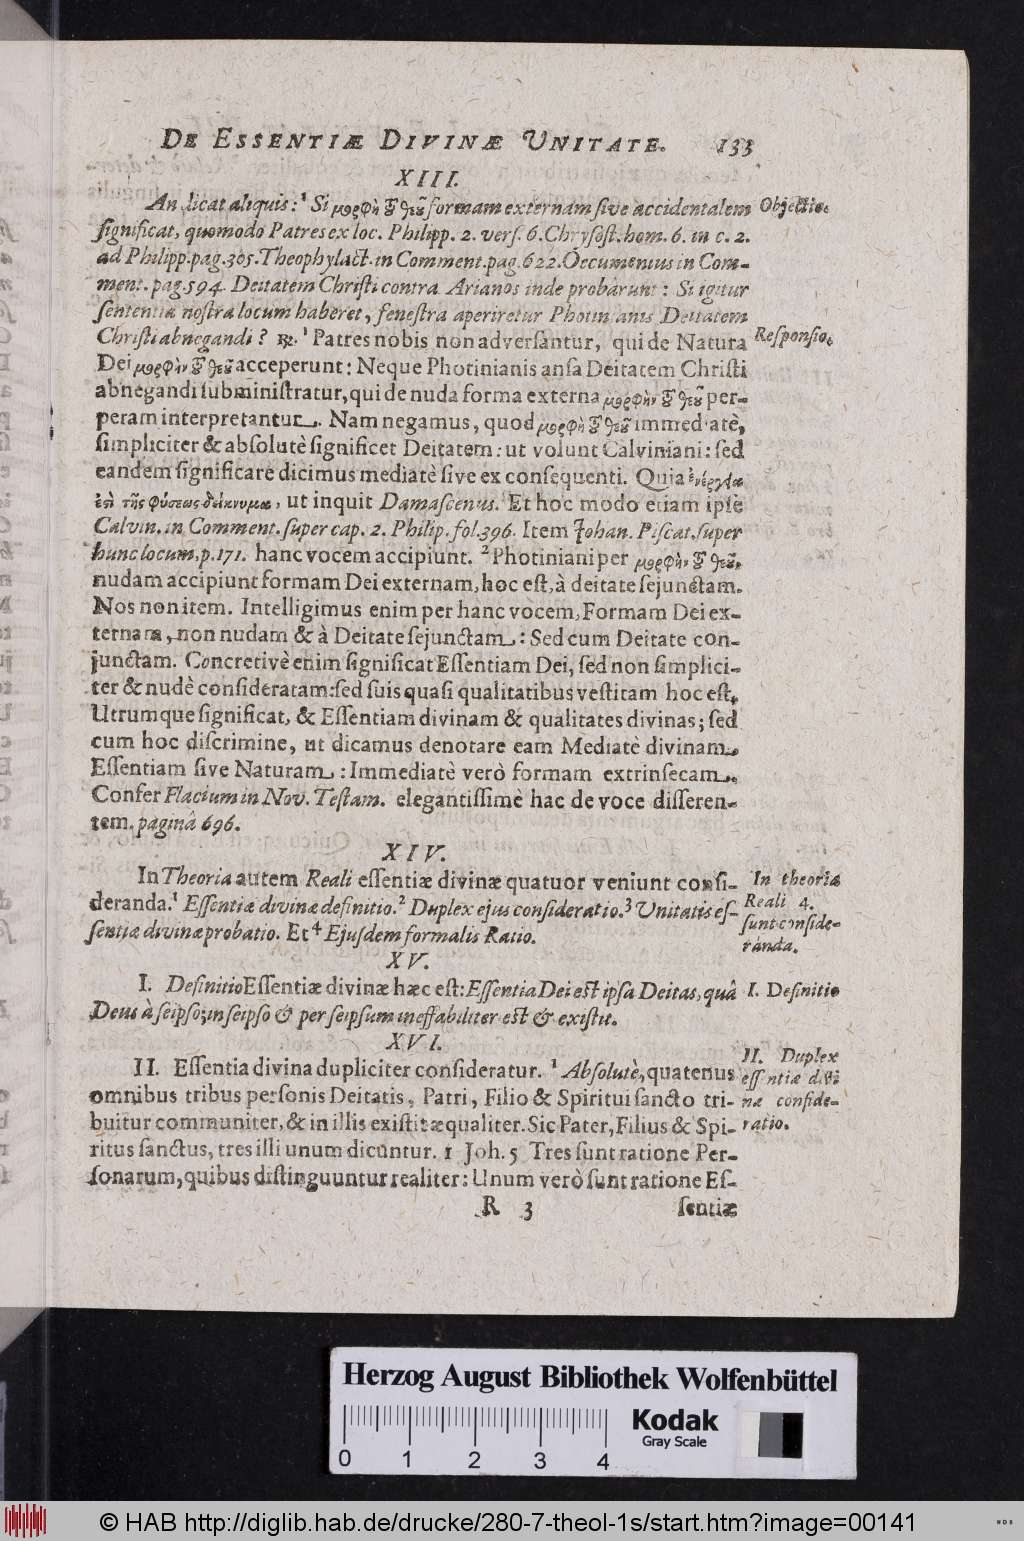 DE ESSENTIÆ DIVINÆ UNITATE. 133
XIII.
An dicat aliquis:¹ Si μορφὴ τοῦ θεοῦ formam externam ſive accidentalem
Objectio.
ſignificat, quomodo Patres ex loc. Philipp. 2. verſ. 6. Chryſoſt. hom. 6. in c. 2.
ad Philipp. pag. 305. Theophylact. in Comment. pag. 622. Oecumenius in Com-
ment. pag. 594. Deitatem Chriſti contra Arianos inde probârunt: Si igitur
ſententia noſtra locum haberet, feneſtra aperiretur Photinianis Deitatem
Chriſti abnegandi? ℞.¹ Patres nobis non adverſantur, qui de Natura
Reſponſio.
Dei μορφὴν τοῦ θεοῦ acceperunt: Neque Photinianis anſa Deitatem Chriſti
abnegandi ſubminiſtratur, qui de nuda forma externa μορφὴν τοῦ θεοῦ per-
peram interpretantur. Nam negamus, quod μορφὴ τοῦ θεοῦ immediatè,
ſimpliciter & abſolutè ſignificet Deitatem: ut volunt Calviniani: ſed
eandem ſignificare dicimus mediatè ſive ex conſequenti. Quia
ut inquit Damaſcenus. Et hoc modo etiam ipſe
Calvin. in Comment. ſuper cap. 2. Philip. fol. 396. Item Johan. Piſcat. ſuper
hunc locum, p. 171. hanc vocem accipiunt. ² Photiniani per μορφὴν τοῦ θεοῦ,
nudam accipiunt formam Dei externam, hoc eſt, à deitate ſejunctam.
Nos non item. Intelligimus enim per hanc vocem, Formam Dei ex-
ternam, non nudam & à Deitate ſejunctam: Sed cum Deitate con-
junctam. Concretivè enim ſignificat Eſſentiam Dei, ſed non ſimplici-
ter & nudè conſideratam: ſed ſuis quaſi qualitatibus veſtitam hoc eſt,
Utrumque ſignificat, & Eſſentiam divinam & qualitates divinas; ſed
cum hoc diſcrimine, ut dicamus denotare eam Mediatè divinam
Eſſentiam ſive Naturam: Immediatè verò formam extrinſecam.
Confer Flacium in Nov. Teſtam. elegantiſſimè hac de voce diſſeren-
tem. paginâ 696.
XIV.
In Theoria autem Reali eſſentiæ divinæ quatuor veniunt conſi-
In theoria
deranda.¹ Eſſentiæ divinæ definitio.² Duplex ejus conſideratio.³ Unitatis eſ-
Reali 4.
ſunt conſide-
ſentiæ divinæ probatio. Et⁴ Ejuſdem formalis Ratio.
randa.
XV.
I. Definitio Eſſentiæ divinæ hæc eſt: Eſſentia Dei eſt ipſa Deitas, quâ
I. Definitio
Deus à ſeipſo; in ſeipſo & per ſeipſum ineffabiliter eſt & exiſtit.
XVI.
II. Duplex
II. Eſſentia divina dupliciter conſideratur. ¹ Abſolutè, quatenus
eſſentiæ divi
omnibus tribus perſonis Deitatis, Patri, Filio & Spiritui ſancto tri-
næ conſide-
buitur communiter, & in illis exiſtit æqualiter. Sic Pater, Filius & Spi-
ratio.
ritus ſanctus, tres illi unum dicuntur. 1 Joh. 5 Tres ſunt ratione Per-
ſonarum, quibus diſtinguuntur realiter: Unum verò ſunt ratione Eſ-
R 3 ſentiæ
Herzog August Bibliothek Wolfenbüttel
Kodak
Gray Scale
0 1 2 3 4
© HAB http://diglib.hab.de/drucke/280-7-theol-1s/start.htm?image=00141